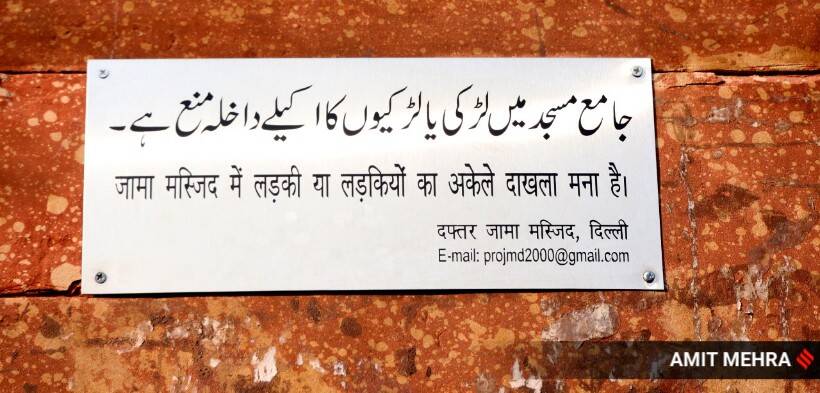 جامع مسجد میں لڑکی یا لڑکیوں کا اکیلے داخلہ منع ہے۔
जामा मस्जिद में लड़की या लड़कियों का अकेले दाखला मना है।
दफ्तर जामा मस्जिद, दिल्ली
E-mail: projmd2000@gmail.com
AMIT MEHRA